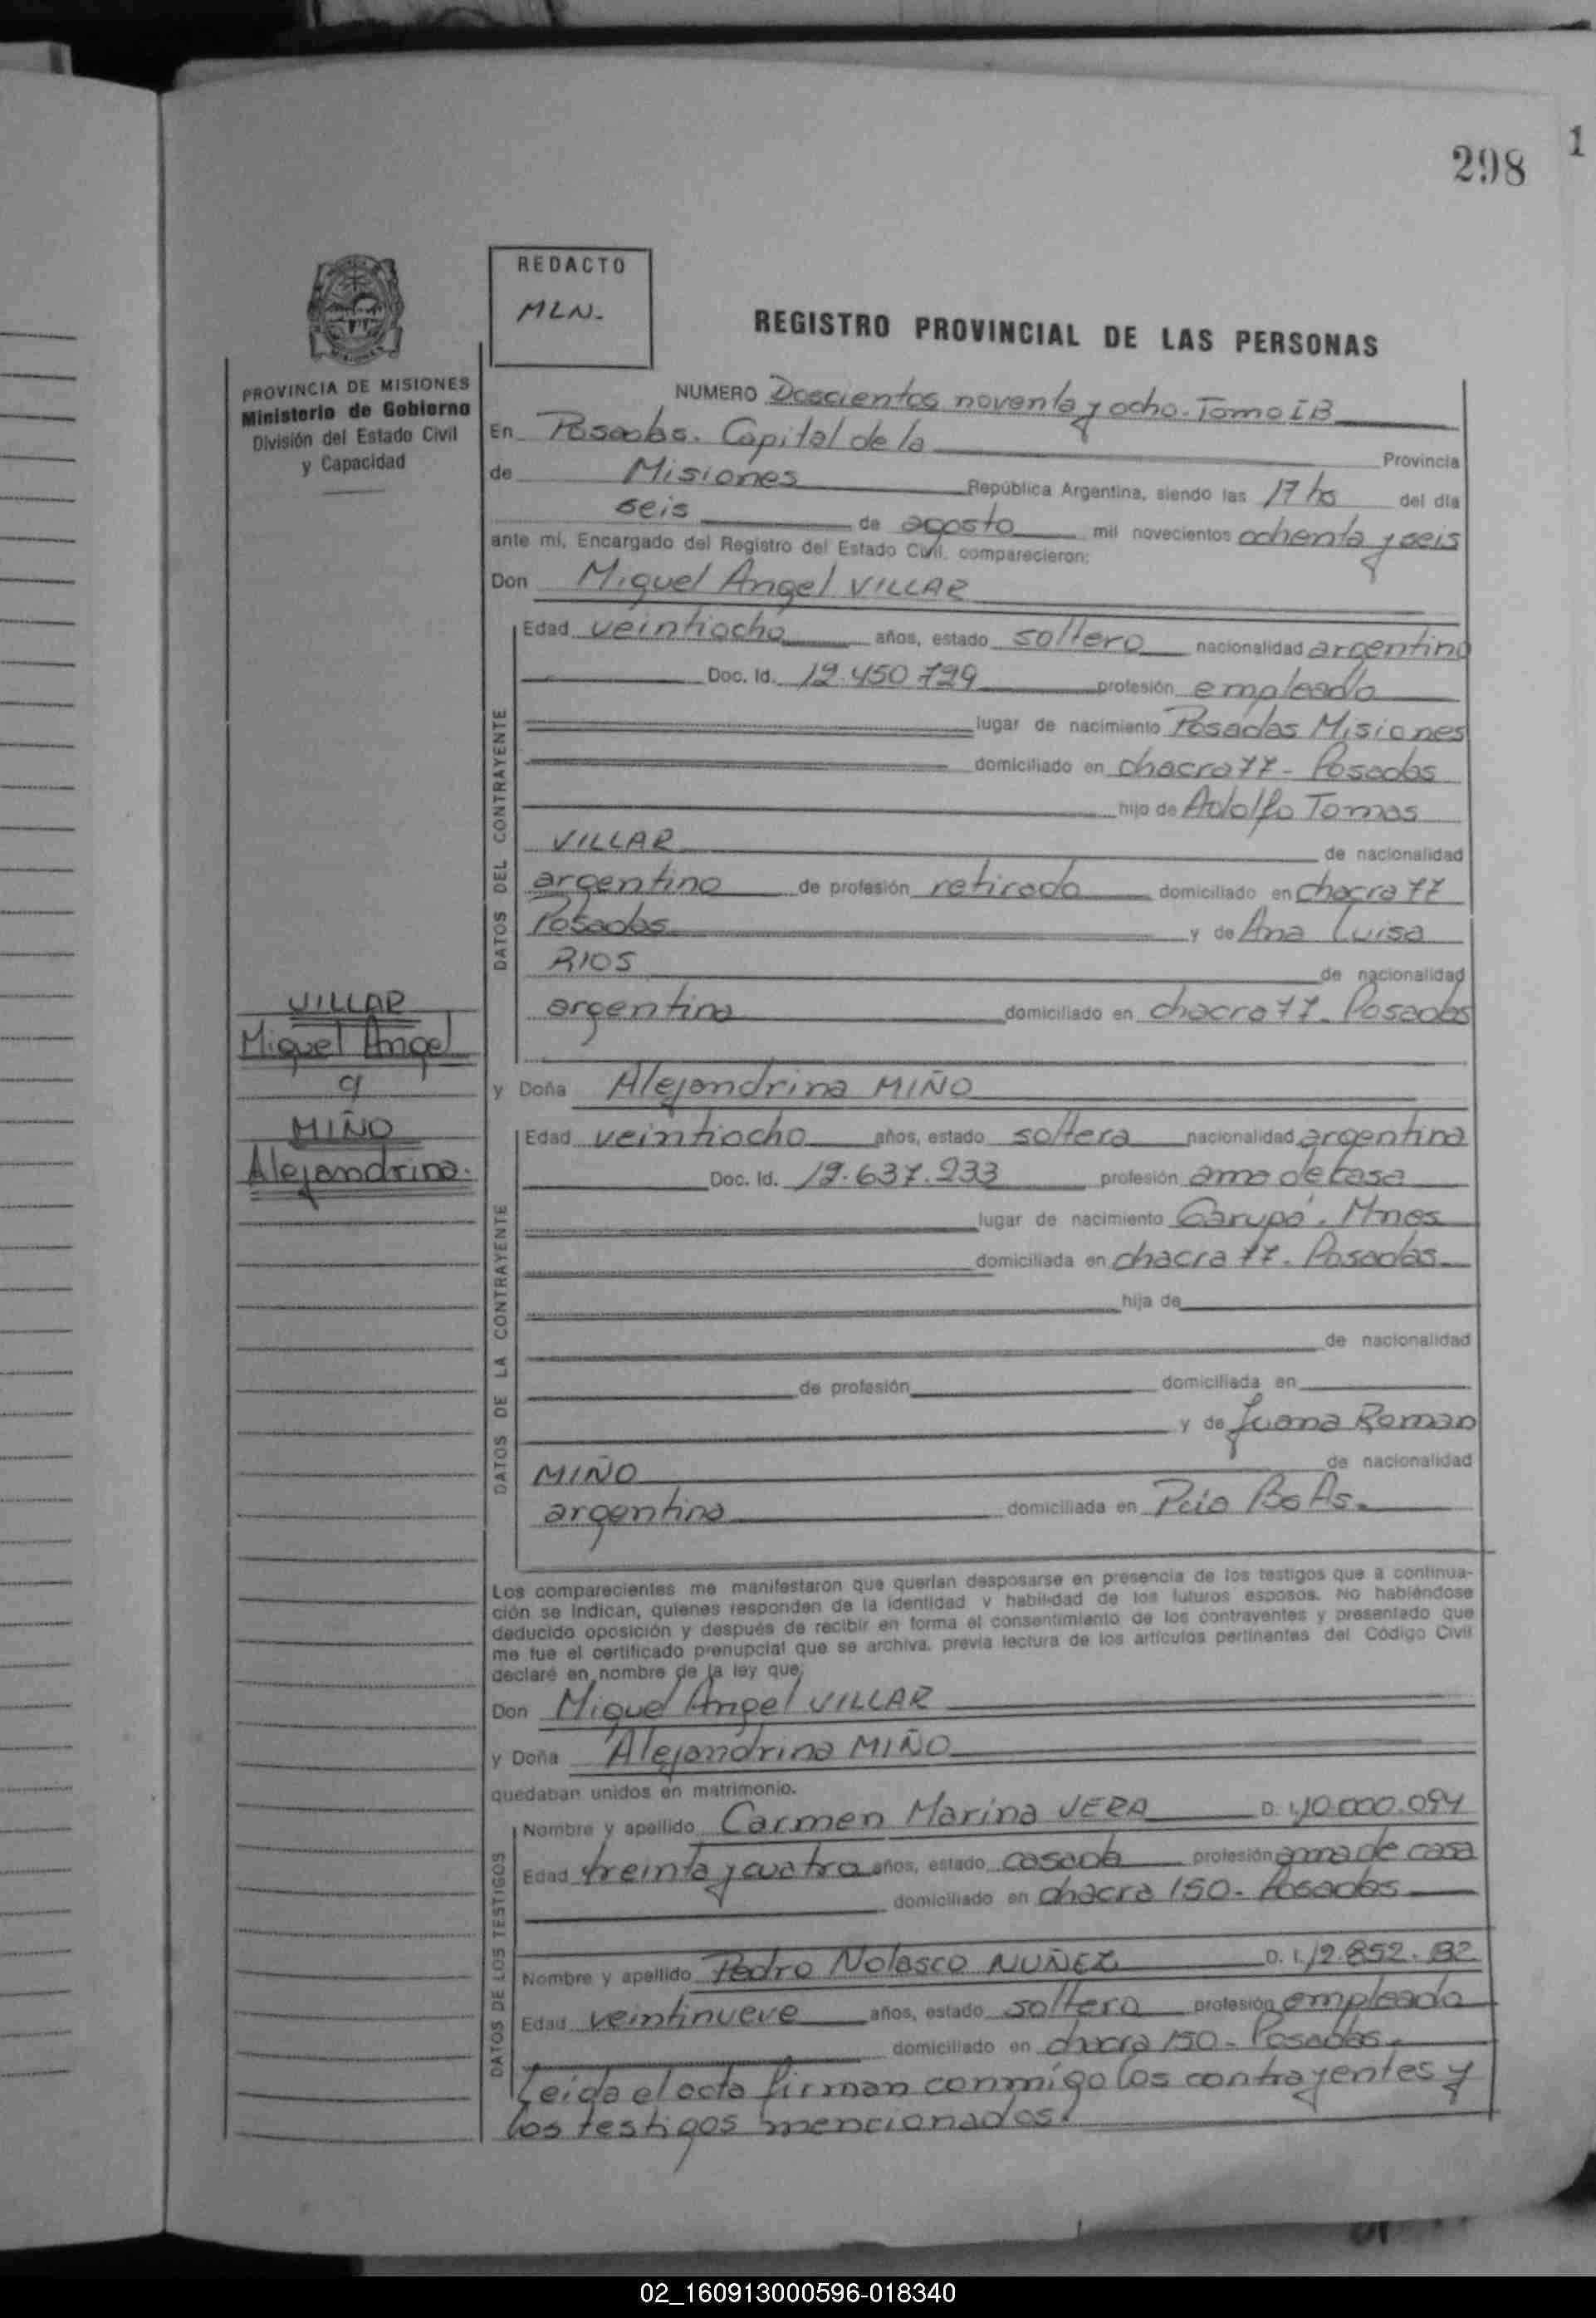 298
1
REDACTO
MLN.
REGISTRO PROVINCIAL DE LAS PERSONAS
PROVINCIA DE MISIONES
Ministerio de Gobierno
División del Estado Civil
y Capacidad
NUMERO Doscientos noventa y ocho. Tomo I B
En Posadas. Capital de la Provincia
de Misiones República Argentina, siendo las 17 hs del día
seis de agosto mil novecientos ochenta y seis
ante mí, Encargado del Registro del Estado Civil, comparecieron:
Don Miguel Angel VILLAR
DATOS DEL CONTRAYENTE
Edad veintiocho años, estado soltero nacionalidad argentino
Doc. Id. 12.450.729 profesión empleado
lugar de nacimiento Posadas Misiones
domiciliado en chacra 77 - Posadas
hijo de Adolfo Tomas
VILLAR de nacionalidad
argentino de profesión retirado domiciliado en chacra 77
Posadas y de Ana Luisa
RIOS de nacionalidad
argentina domiciliado en chacra 77 - Posadas
VILLAR
Miguel Angel
MIÑO
Alejandrina.
y Doña Alejandrina MIÑO
DATOS DE LA CONTRAYENTE
Edad veintiocho años, estado soltera nacionalidad argentina
Doc. Id. 12.637.233 profesión ama de casa
lugar de nacimiento Garupá. Mnes
domiciliada en chacra 77 - Posadas
hija de
de nacionalidad
de profesión domiciliada en
y de Juana Roman
MIÑO de nacionalidad
argentina domiciliada en Pcia Bs As.
Los comparecientes me manifestaron que querían desposarse en presencia de los testigos que a continua-
ción se indican, quienes responden de la identidad y habilidad de los futuros esposos. No habiéndose
deducido oposición y después de recibir en forma el consentimiento de los contrayentes y presentado que
me fue el certificado prenupcial que se archiva, previa lectura de los artículos pertinentes del Código Civil
declaré en nombre de la ley que:
Don Miguel Angel VILLAR
y Doña Alejandrina MIÑO
quedaban unidos en matrimonio.
DATOS DE LOS TESTIGOS
Nombre y apellido Carmen Marina VERA D. I. 10.000.094
Edad treinta y cuatro años, estado casada profesión ama de casa
domiciliado en chacra 150 - Posadas
Nombre y apellido Pedro Nolasco NUÑEZ D. I.
Edad veintinueve años, estado soltero profesión empleado
domiciliado en chacra 150 - Posadas.
Leida el acta firman conmigo los contrayentes y
los testigos mencionados.
02_160913000596-018340